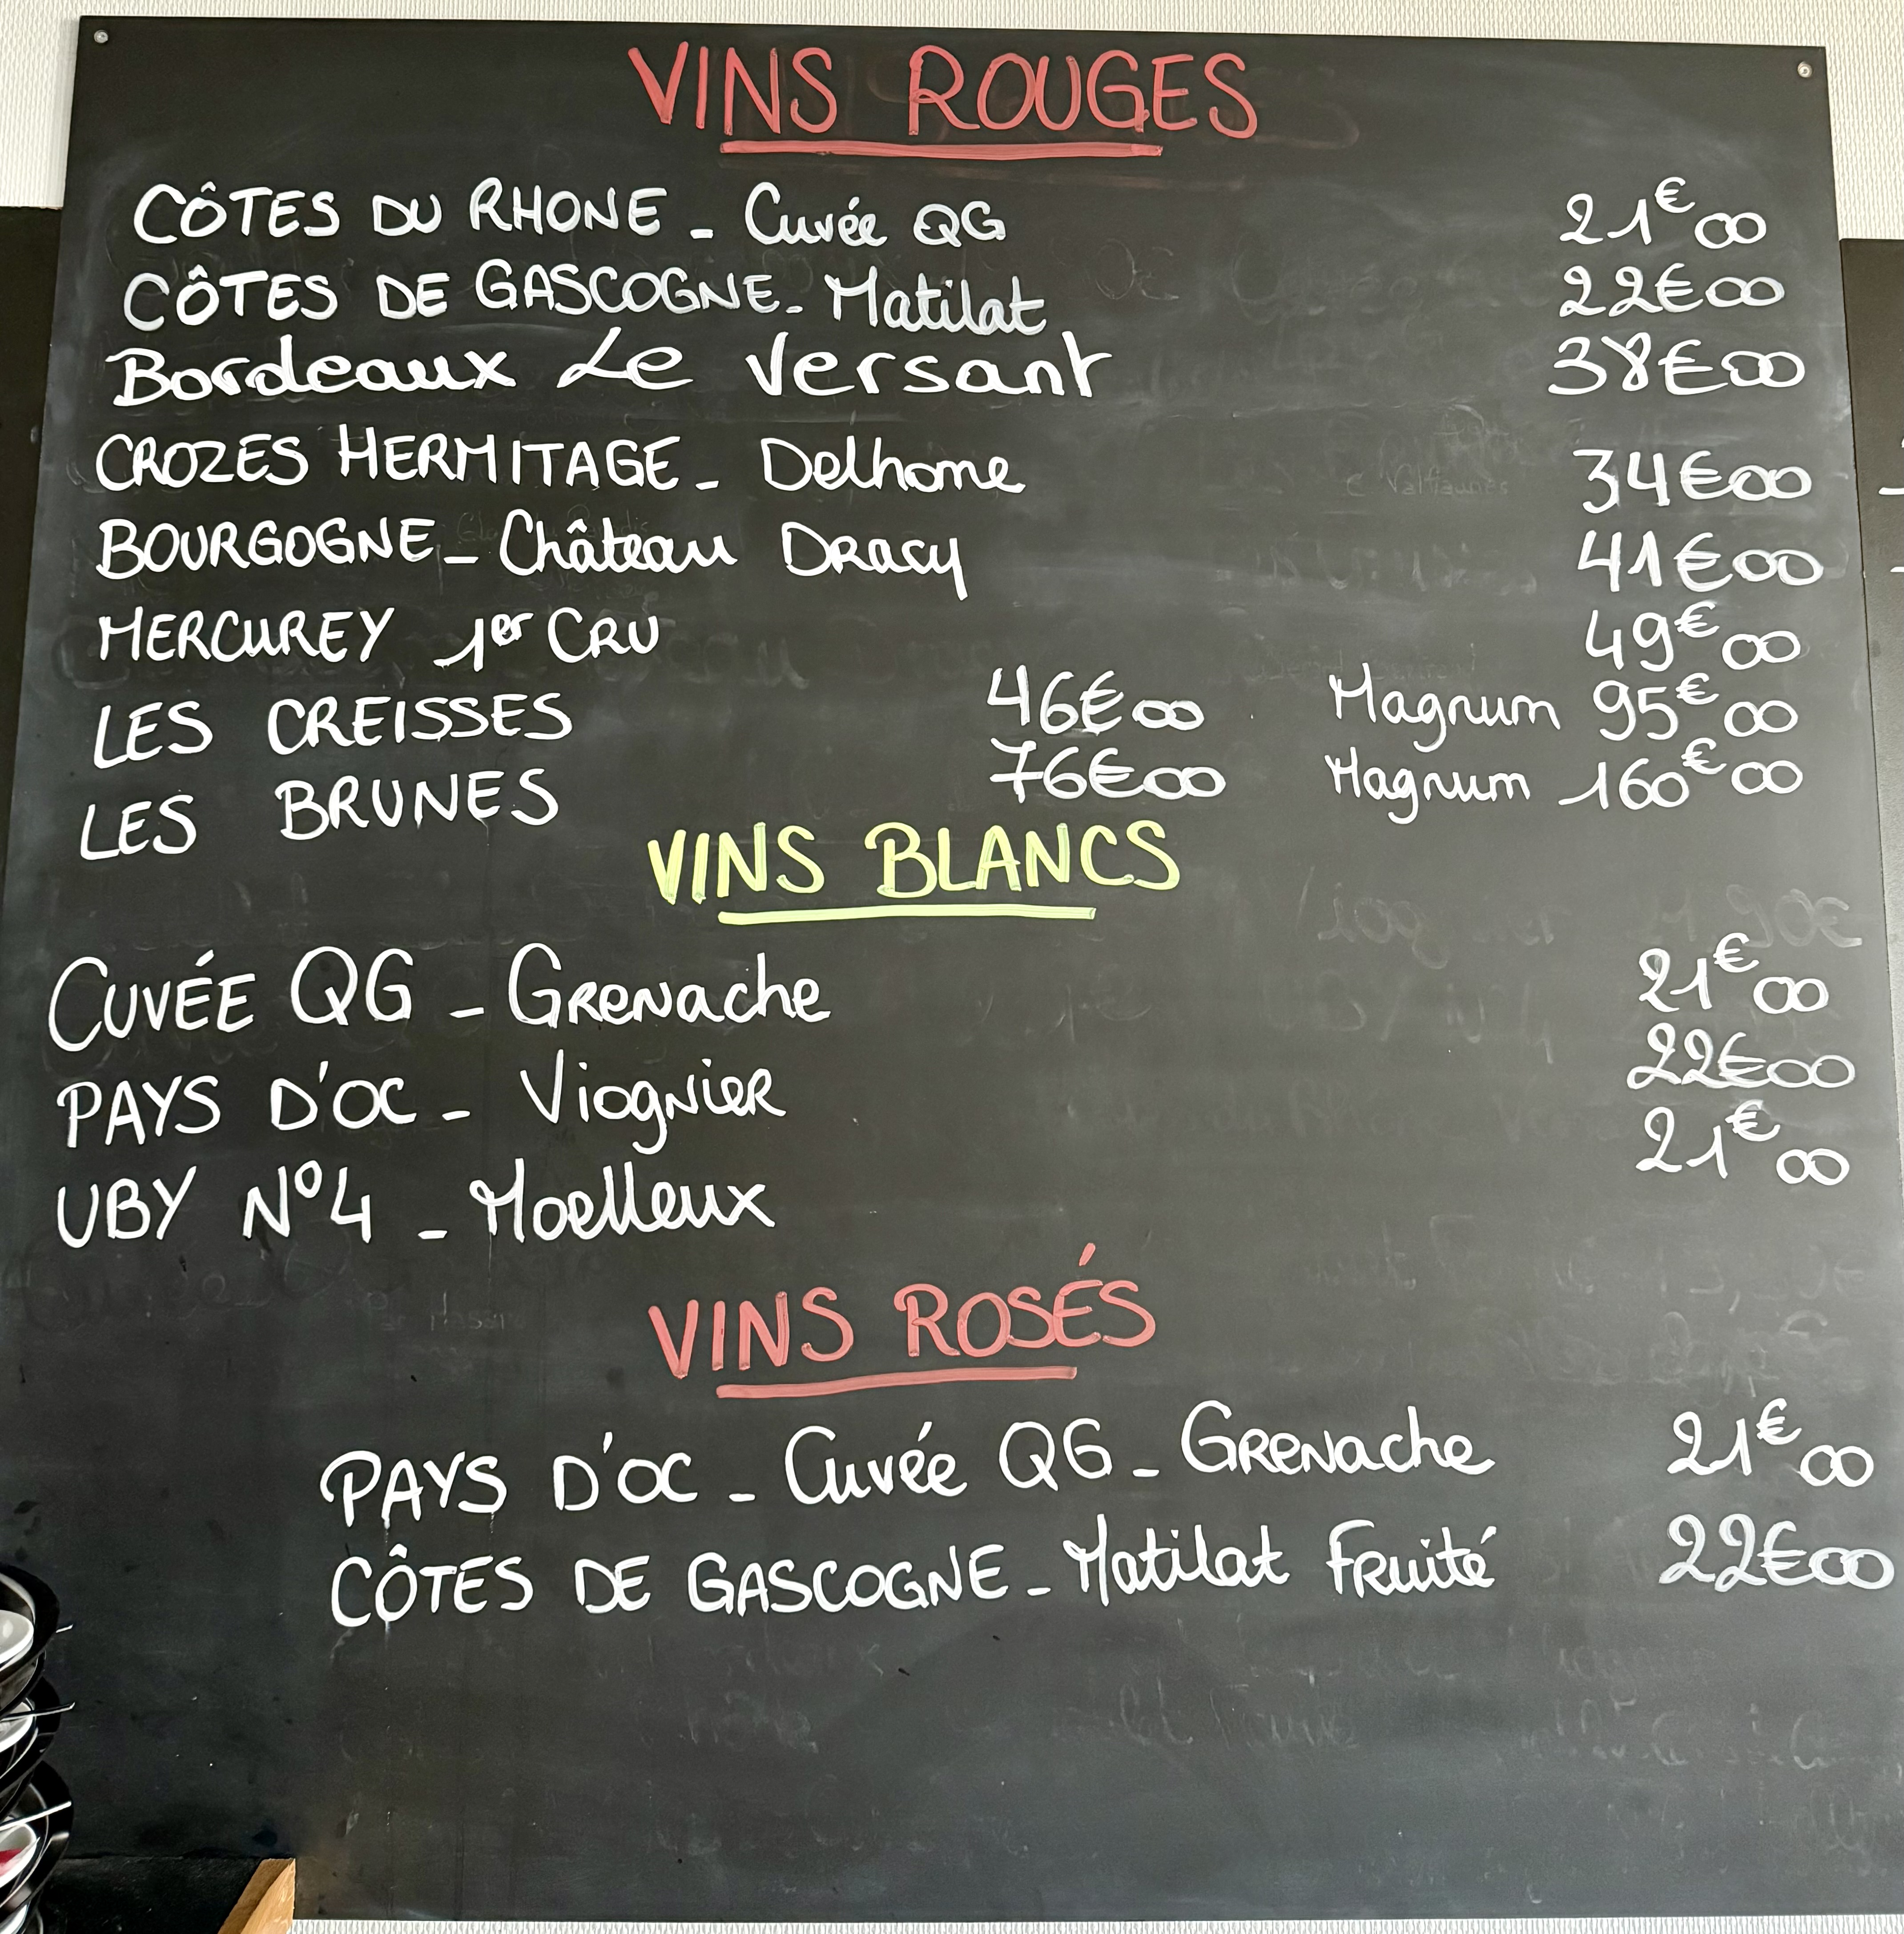 VINS ROUGES
CÔTES DU RHONE - Cuvée QG 21€00
CÔTES DE GASCOGNE - Matilat 22€00
Bordeaux Le Versant 38€00
CROZES HERMITAGE - Delhome 34€00
BOURGOGNE - Château Dracy 41€00
MERCUREY 1er CRU 49€00
LES CREISSES 46€00 Magnum 95€00
LES BRUNES 76€00 Magnum 160€00
VINS BLANCS
CUVÉE QG - GRENache 21€00
PAYS D'OC - Viognier 22€00
UBY N°4 - Moelleux 21€00
VINS ROSÉS
PAYS D'OC - Cuvée QG - GRENache 21€00
CÔTES DE GASCOGNE - Matilat Fruité 22€00